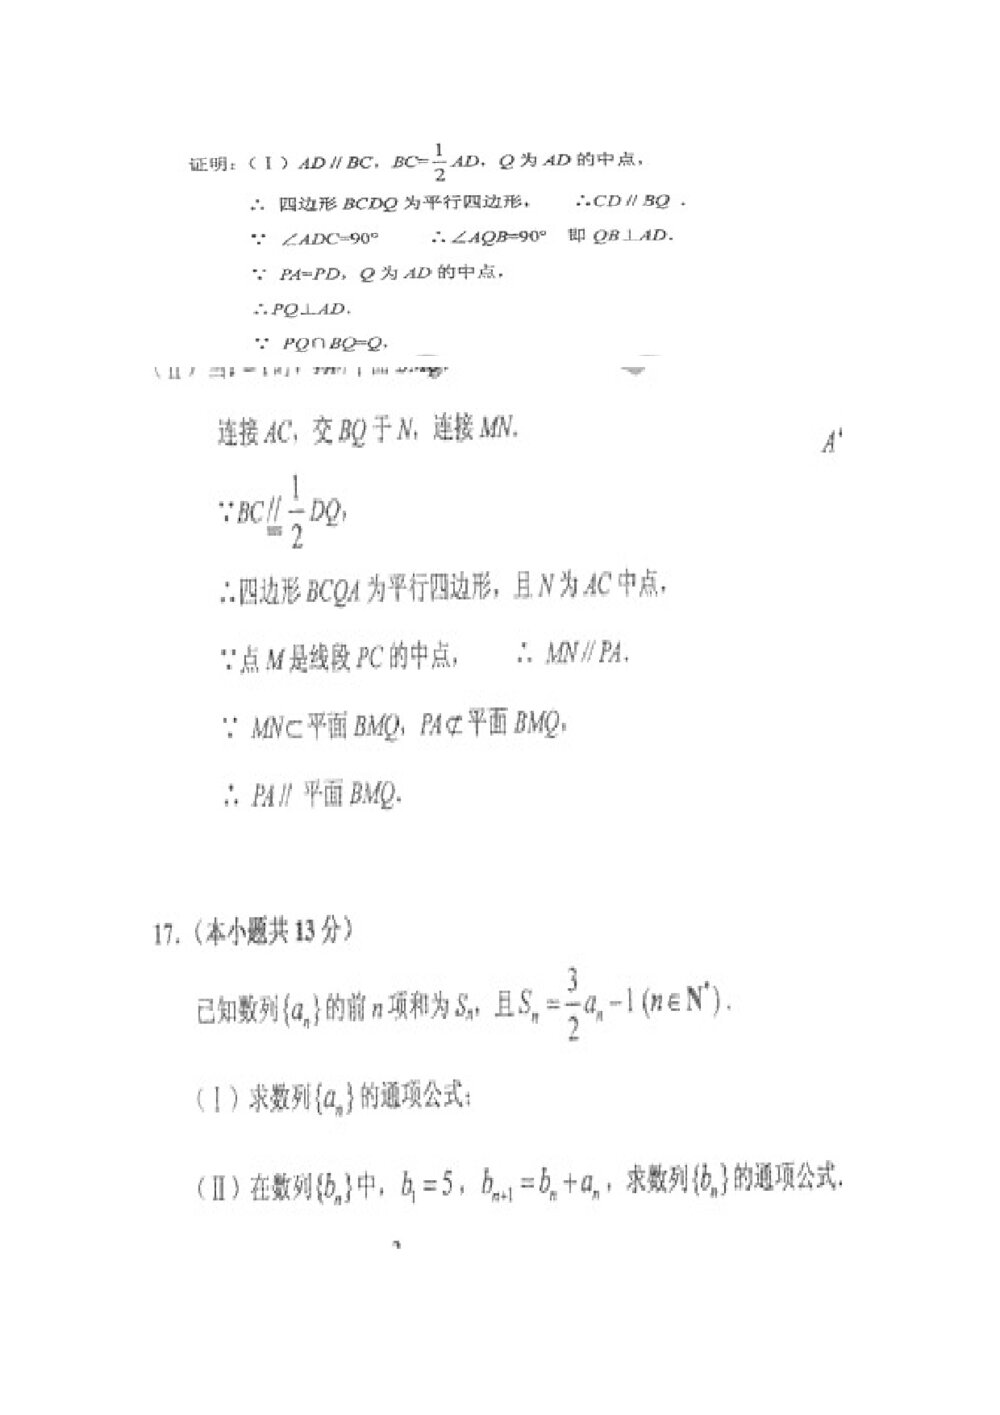 证明:(Ⅰ) AD // BC, BC=1/2 AD, Q 为 AD 的中点,
∴ 四边形 BCDQ 为平行四边形, ∴CD // BQ .
∵ ∠ADC=90° ∴∠AQB=90° 即 QB⊥AD.
∵ PA=PD, Q 为 AD 的中点,
∴PQ⊥AD.
∵ PQ∩BQ=Q,
(Ⅱ)
连接 AC, 交 BQ 于 N, 连接 MN.
A
∵BC // 1/2 DQ,
∴四边形 BCQA 为平行四边形, 且 N 为 AC 中点,
∵点 M 是线段 PC 的中点, ∴ MN // PA.
∵ MN⊂平面 BMQ, PA⊄平面 BMQ,
∴ PA // 平面 BMQ.
17.(本小题共 13 分)
已知数列{aₙ}的前 n 项和为 Sₙ, 且 Sₙ = 3/2 aₙ − 1 (n∈N*).
(Ⅰ) 求数列{aₙ}的通项公式;
(Ⅱ) 在数列{bₙ}中, b₁ = 5, bₙ₊₁ = bₙ + aₙ, 求数列{bₙ}的通项公式.